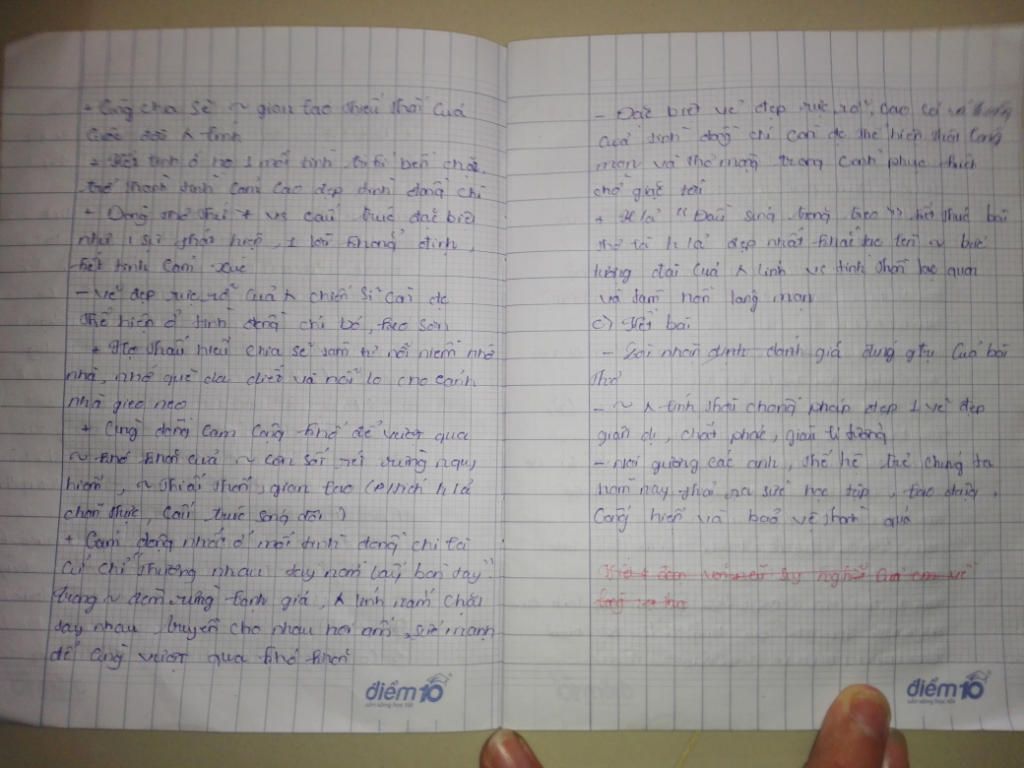 + Cùng chia sẻ ~ gian lao thiếu thốn của
cuộc đời ⋏ lính
+ Kết tinh ở họ 1 mối tình tri kỉ bền chặt
trở thành tình cảm cao đẹp tình đồng chí
+ Dòng thơ thứ 7 vs cấu trúc đặc biệt
như 1 sự phát hiện, 1 lời khẳng định,
kết tinh cảm xúc
- Vẻ đẹp rực rỡ của ⋏ chiến sĩ còn đc
thể hiện ở tình đồng chí bó, keo sơn
+ Họ thấu hiểu chia sẻ tâm tư nỗi niềm nhớ
nhà, nhớ quê da diết và nỗi lo cho cảnh
nhà gieo neo
+ Cùng đồng cam cộng khổ để vượt qua
~ khó khăn của ~ cơn sốt rét rừng nguy
hiểm, ~ thiếu thốn, gian lao ( h/ả
chân thực, cấu trúc sóng đôi )
+ Cảm động nhất ở mối tình đồng chí là
cử chỉ "thương nhau tay nắm lấy bàn tay"
trong ~ đêm rừng lạnh giá, ⋏ lính nắm chặt
tay nhau, truyền cho nhau hơi ấm, sức mạnh
để cùng vượt qua khó khăn
điểm 10
sẵn sàng học tốt
- Đặc biệt vẻ đẹp rực rỡ, cao cả
của tình đồng chí còn đc thể hiện thật lãng
mạn và thơ mộng trong cảnh phục kích
chờ giặc tới
+ H/ả "Đầu súng trăng treo" kết thúc bài
thơ là h/ả đẹp nhất khái tạc lên ~ bức
tượng đài của ⋏ lính vs tinh thần lạc quan
và tâm hồn lãng mạn
c) Kết bài
- nhận định đánh giá đúng gtrị của bài
thơ
- ~ ⋏ lính thời chống pháp đẹp 1 vẻ đẹp
giản dị, chất phác, giàu lí tưởng
- Noi gương các anh, thế hệ trẻ chúng ta
hôm nay phải ra sức học tập, trau dồi,
cống hiến và bảo vệ thành quả
suy nghĩ của em về
điểm 10
sẵn sàng học tốt